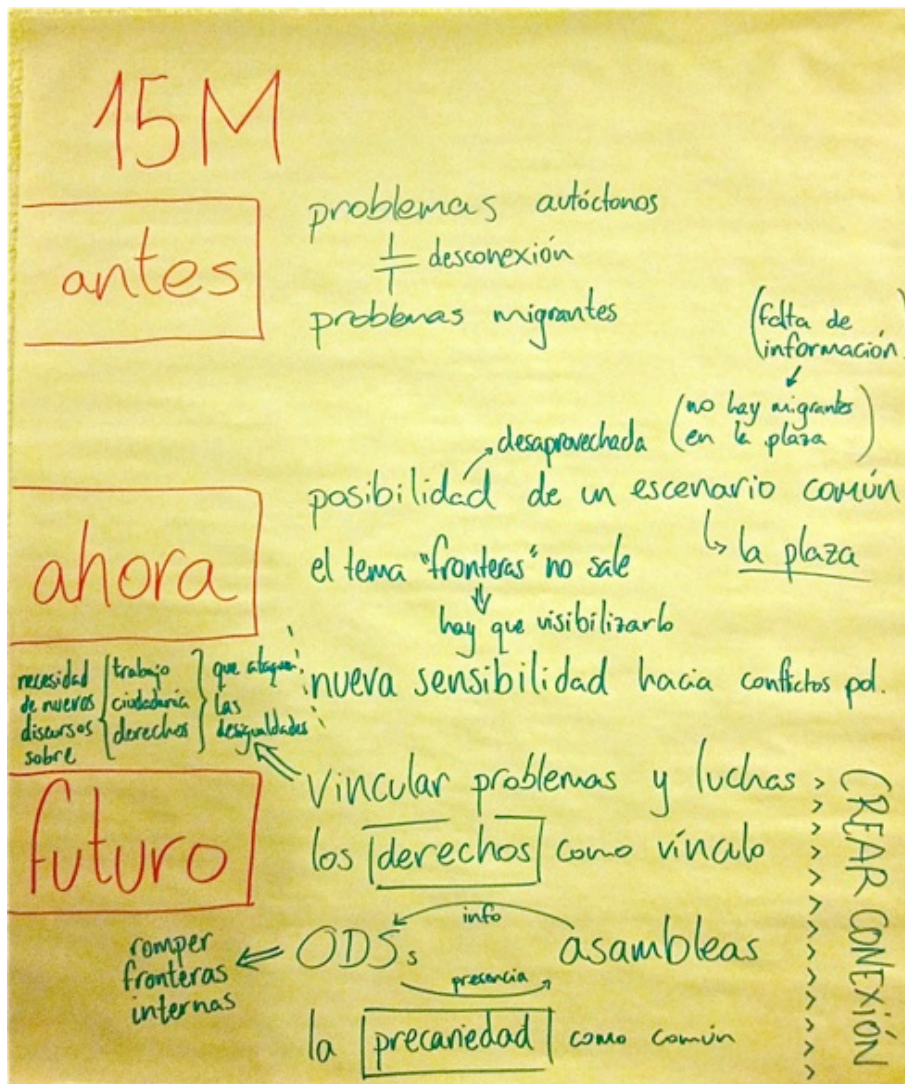 15M
antes
problemas autóctonos
desconexión
problemas migrantes
(falta de
información)
(no hay migrantes
en la plaza)
desaprovechada
posibilidad de un escenario común
la plaza
ahora
el tema "fronteras" no sale
hay que visibilizarlo
nueva sensibilidad hacia conflictos pol.
necesidad
de nuevos
discursos
sobre
trabajo
ciudadanía
derechos
que ataquen
las
desigualdades
futuro
vincular problemas y luchas
los derechos como vínculo
info
ODSs
asambleas
presencia
romper
fronteras
internas
la precariedad como común
CREAR CONEXIÓN